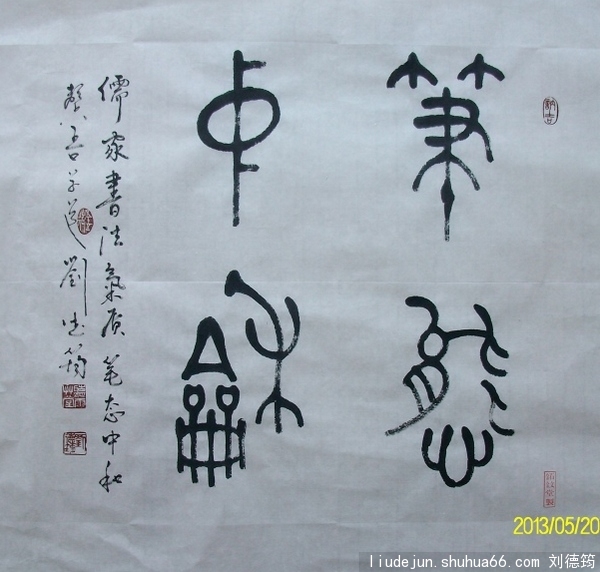 筆態
中龢
儒家書法氣质笔态中和
劉德筠
2013/05/20
liudejun.shuhua66.com 刘德筠